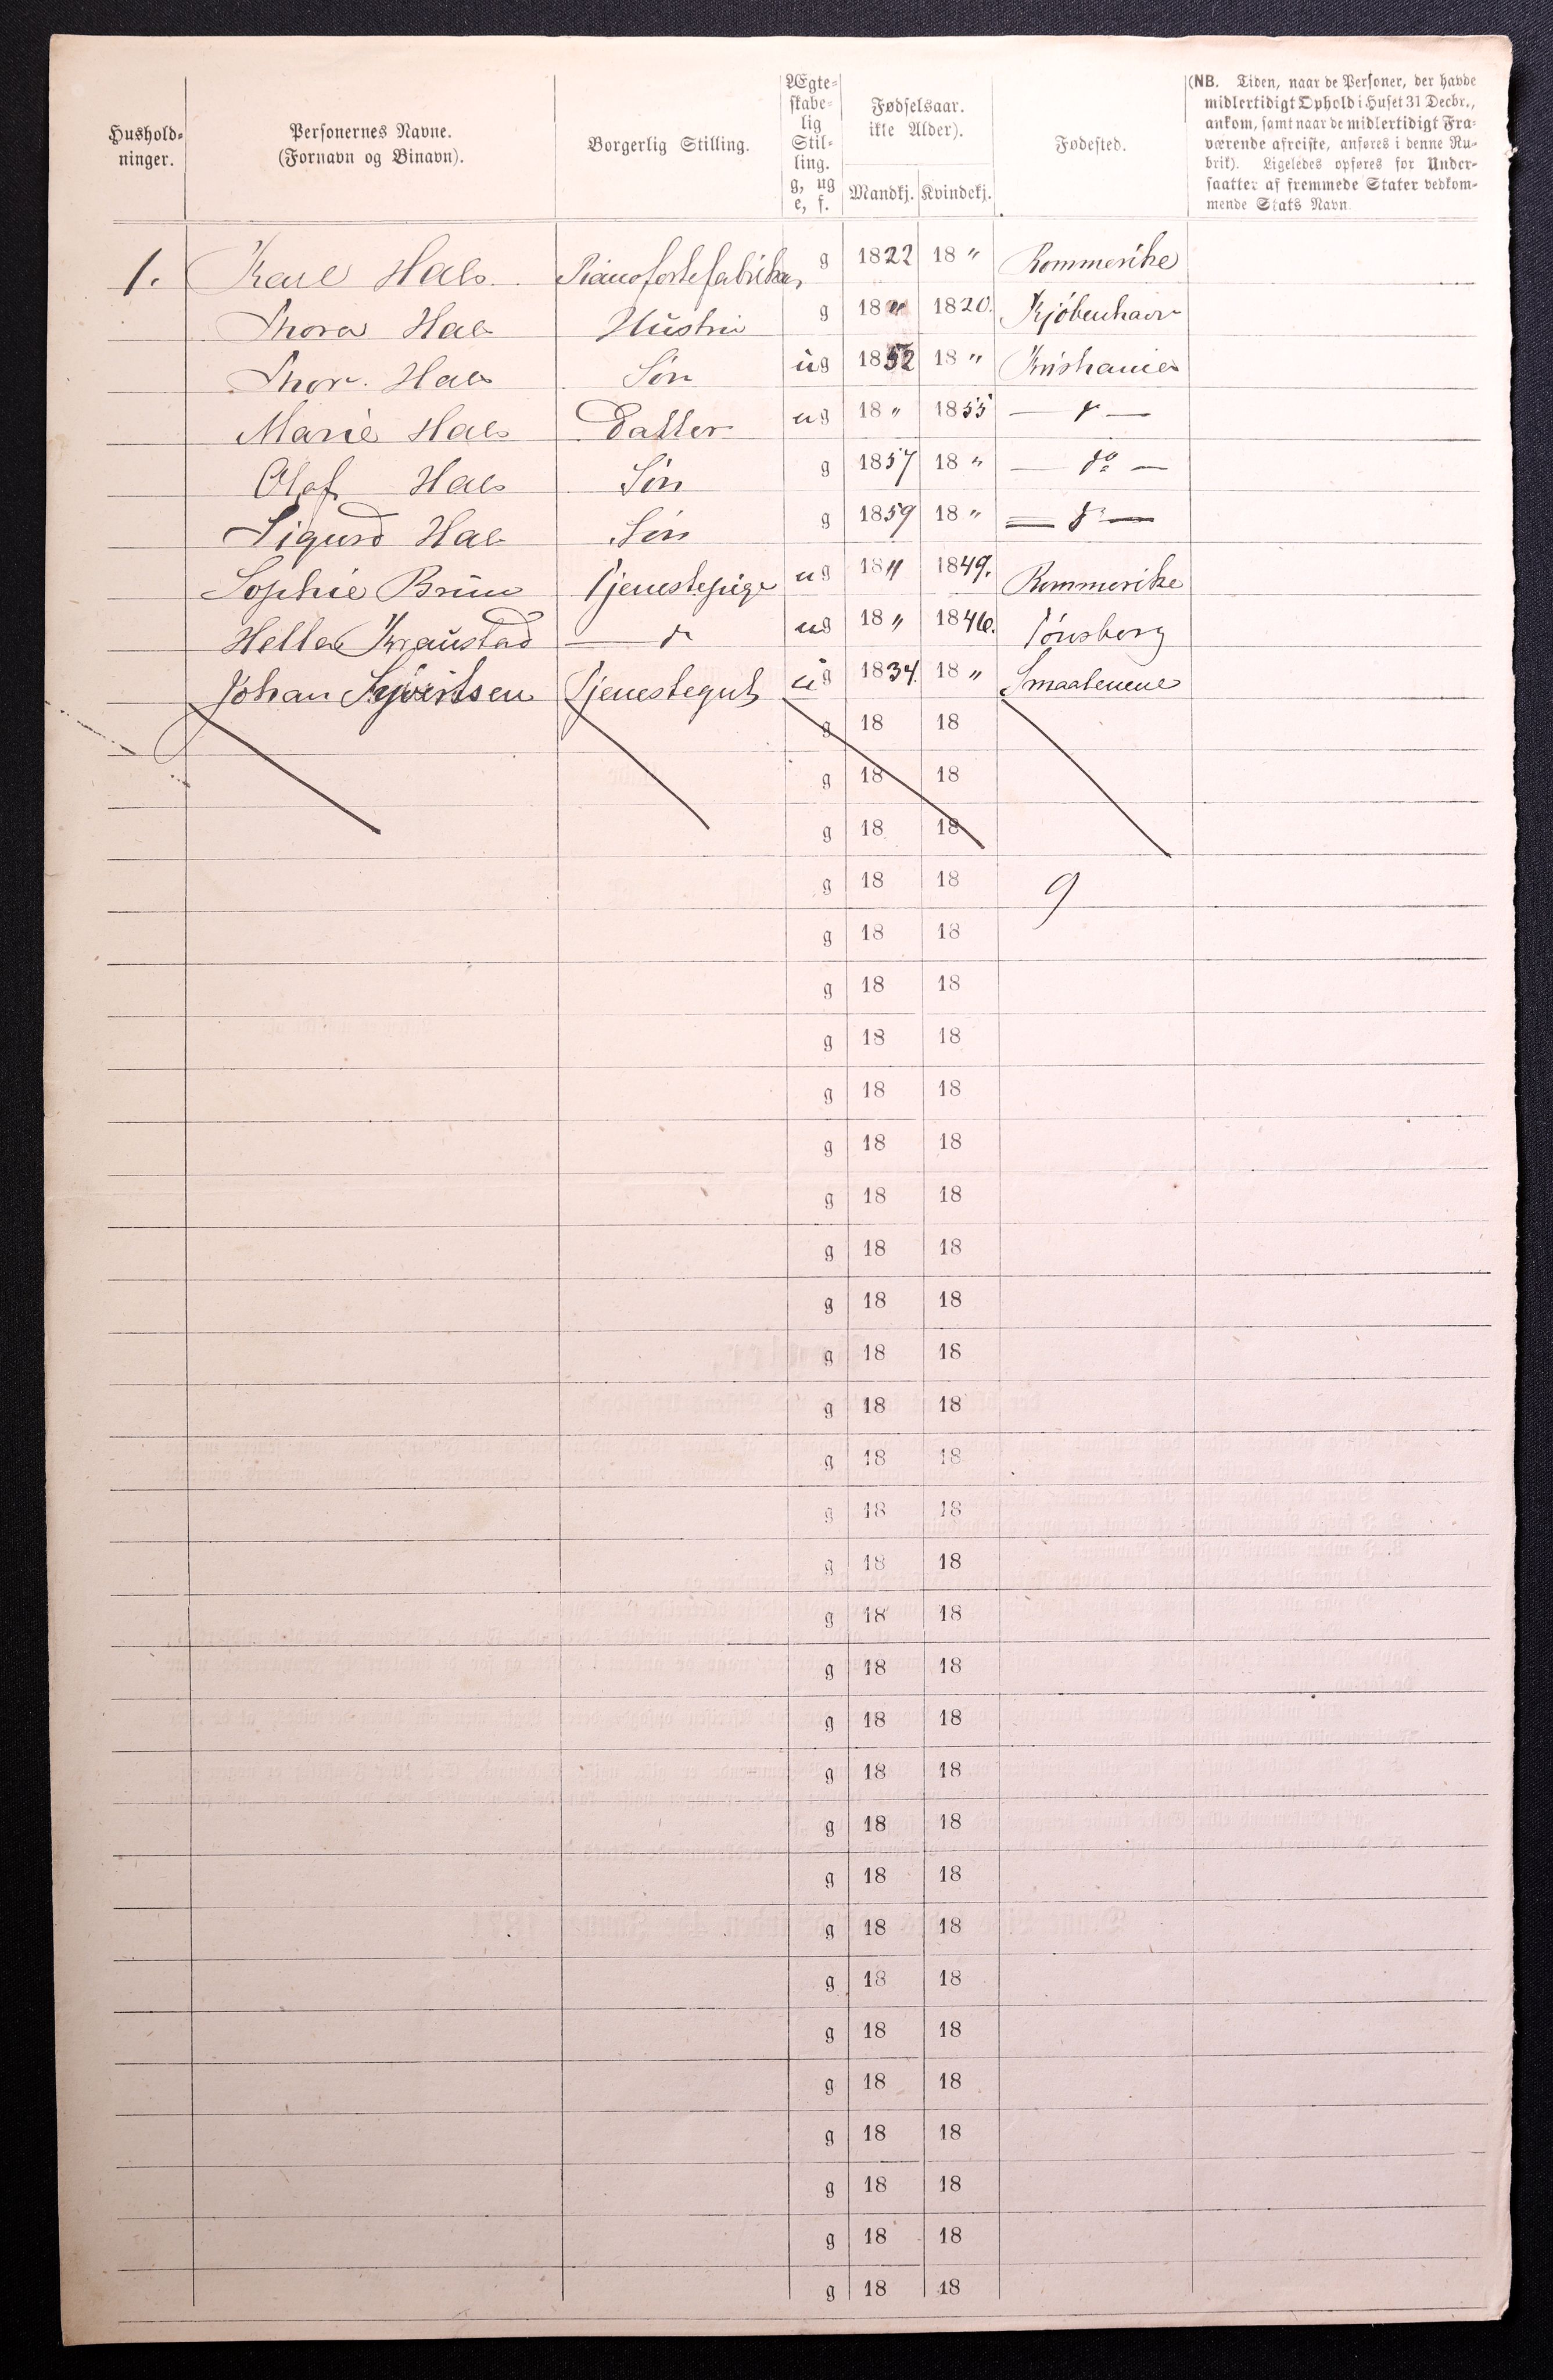 Hushold-
ninger.
Personernes Navne.
(Fornavn og Binavn).
Borgerlig Stilling.
Ægte-
skabe-
lig
Stil-
ling.
g, ug
e, f.
Fødselsaar.
ikke Alder).
Mandkj. Kvindekj.
Fødested.
(NB. Tiden, naar de Personer, der havde
midlertidigt Ophold i Huset 31 Decbr.,
ankom, samt naar de midlertidigt Fra-
værende afreiste, anføres i denne Ru-
brik). Ligeledes opføres for Under-
saatter af fremmede Stater vedkom-
mende Stats Navn.
1. Karl Hals. Pianofortefabrikør g 1822 18 " Rommerike
Thora Hals Hústru g 18 " 1820. Kjöbenhavn
Thor. Hals Sön úg 1852 18 " Kristiania
Marie Hals Datter ug 18 " 1855 — d —
Olaf Hals Sön g 1857 18 " — do —
Sigurd Hals Sön g 1859 18 " — do —
Sophie Brún Tjenestepige ug 18 " 1849. Rommerike
Helle Kraústad — d ug 18 " 1846. Tönsberg
Johan Syvertsen Tjenestegut úg 1834. 18 " Smaalenene
g 18 18
g 18 18
g 18 18
g 18 18 9
g 18 18
g 18 18
g 18 18
g 18 18
g 18 18
g 18 18
g 18 18
g 18 18
g 18 18
g 18 18
g 18 18
g 18 18
g 18 18
g 18 18
g 18 18
g 18 18
g 18 18
g 18 18
g 18 18
g 18 18
g 18 18
g 18 18
g 18 18
g 18 18
g 18 18
g 18 18
g 18 18